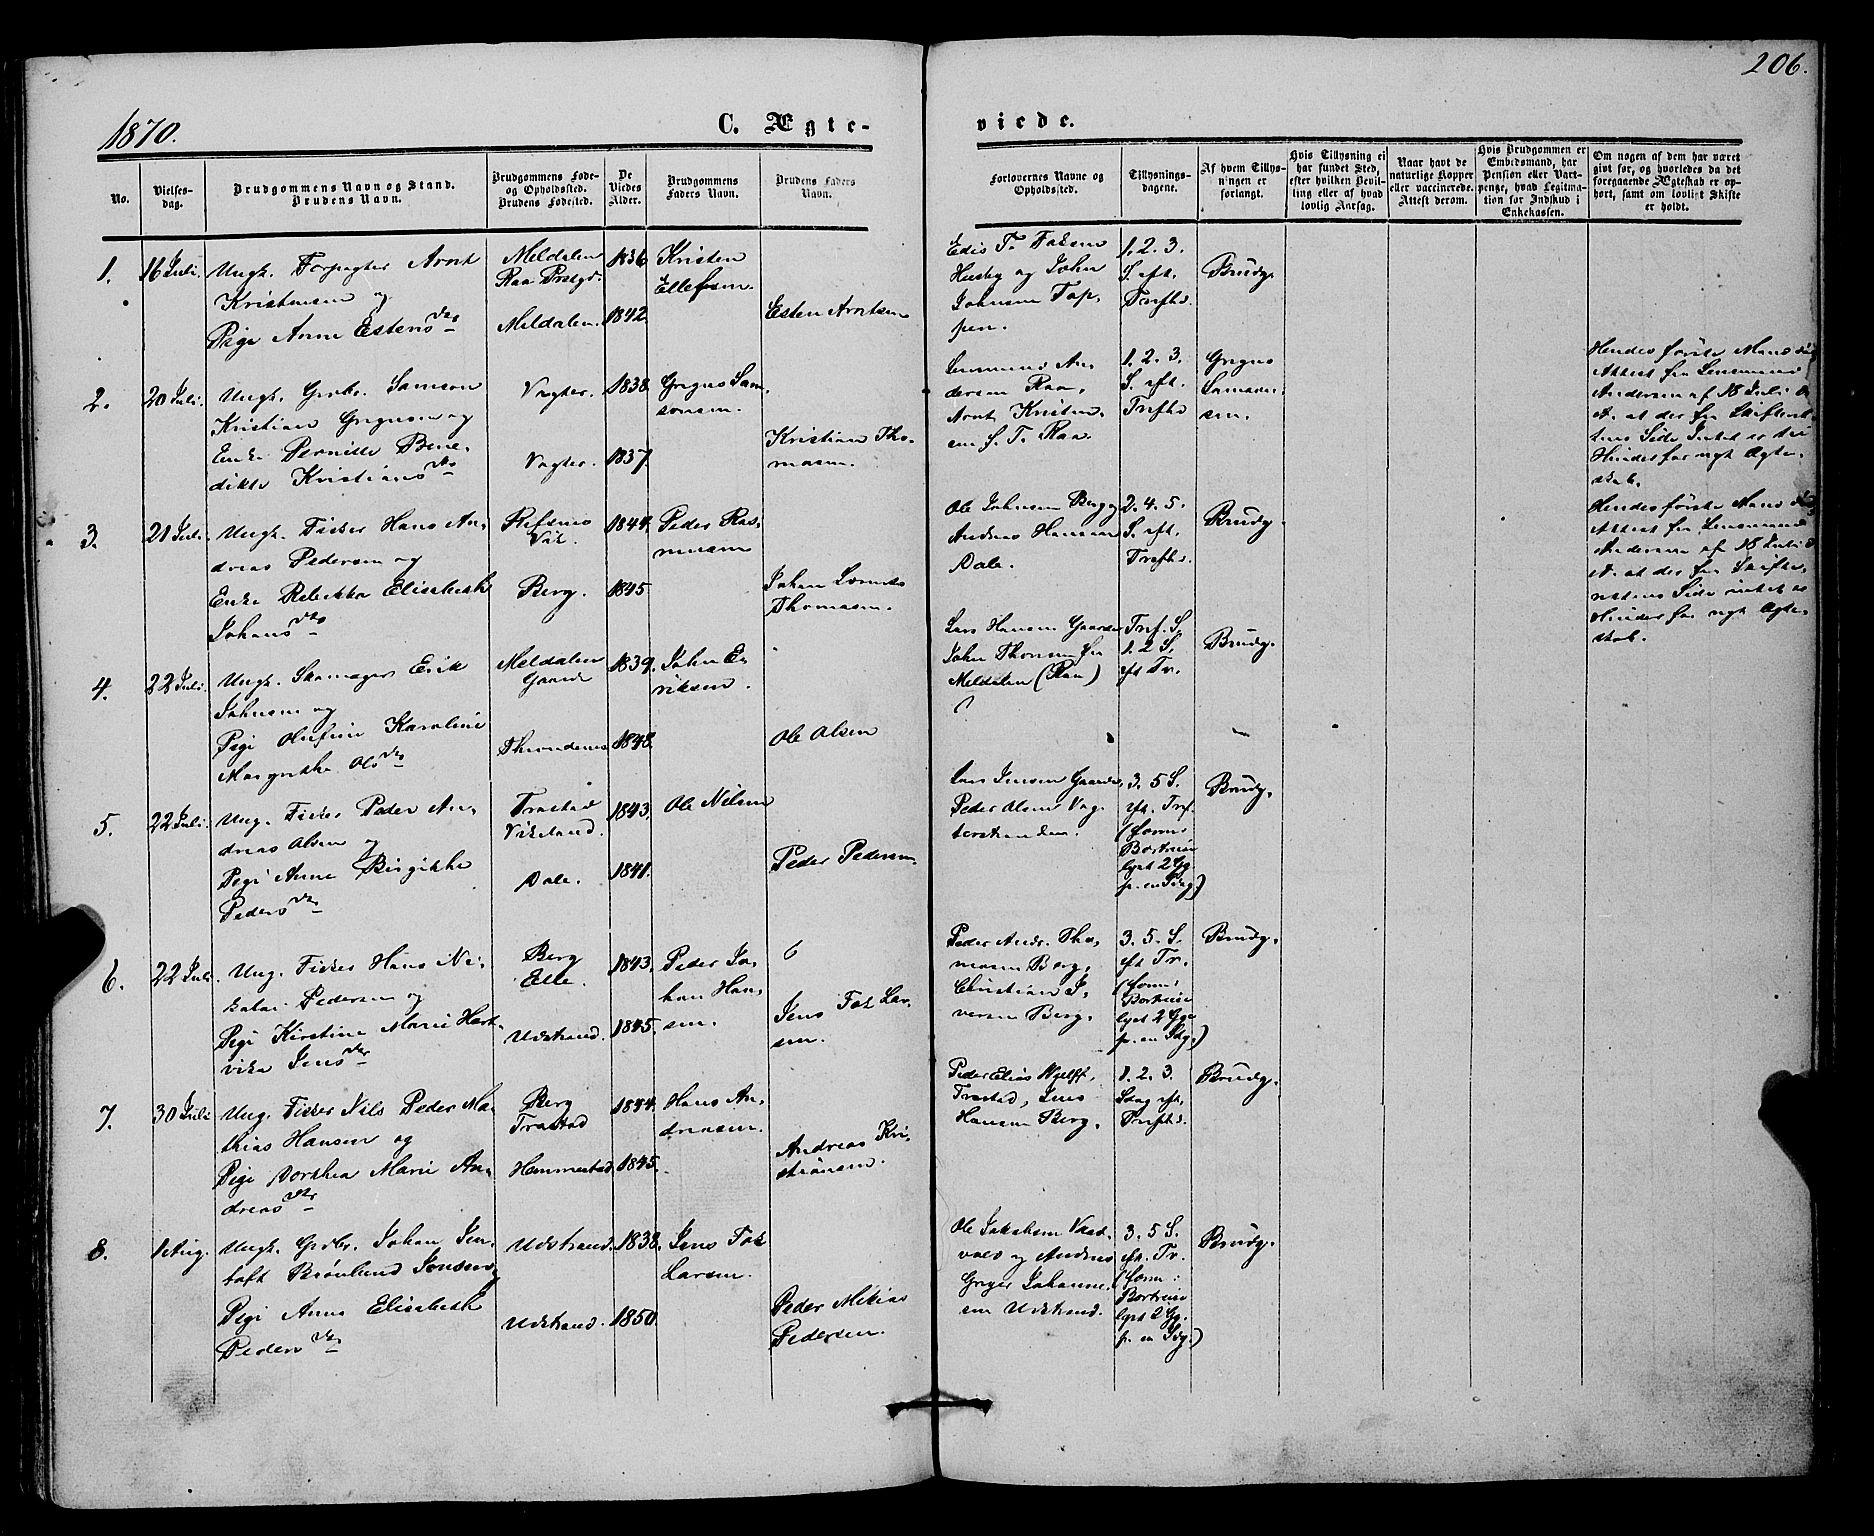 206.
1870.
C. Ægte-
viede.
No.
Vielses-
dag.
Brudgommens Navn og Stand.
Brudens Navn.
Brudgommens Føde-
og Opholdssted.
Brudens Fødested.
De
Viedes
Alder.
Brudgommens
Faders Navn.
Brudens Faders
Navn.
Forlovernes Navne og
Opholdssted.
Tillysnings-
dagene.
Af hvem Tillys-
ningen er
forlangt.
Hvis Tillysning ei
har fundet Sted,
efter hvilken Bevil-
ling eller af hvad
lovlig Aarsag.
Naar havt de
naturlige Kopper
eller vaccinerede.
Attest derom.
Hvis Brudgommen er
Embedsmand, har
Pension eller Vart-
penge, hvad Legitima-
tion for Indskud i
Enkekassen.
Om nogen af dem har været
gift før, og hvorledes da det
foregaaende Ægteskab er op-
hørt, samt om lovligt Skifte
er holdt.
1.
16 Juli.
Ungk. Forpagter Arnt
Kristensen og
Pige Anne Estensdtr
Meldalen
Raa Prstgd.
Meldalen.
1836
1842.
Kristen
Ellefsen.
Esten Arntsen
Edis T. Foksen
Husby og John
Johnsen Top,
pen.
1. 2. 3.
S. eft.
Trefhd.
Brudg.
2.
20 Juli.
Ungk. Grbr. Samson
Kristian Gregusen og
Enke Pernille Bene,
dikte Kristiansdtr
Vagter.
Vagter.
1838.
1837.
Gregus Sam,
sonsen.
Kristian Tho-
masen.
Lensmand An,
dersen Raa,
Arnt Kristen,
sen f. T. Raa.
1. 2. 3.
S. eft.
Trefhd
Gregus
Samson,
sen.
Hendes første Mand
Attest fra Lensmand
Andersen af 18 Juli
A. at der fra Skifteret
tens Side Intet er til
Hinder for nyt Ægte,
skab.
3.
21 Juli.
Ungk. Fisker Hans An,
dreas Pedersen og
Enke Rebekka Elisabeth
Johansdtr
Refsnes
Vik.
Berg.
1844.
1845.
Peder Ras,
musen
Johan Lornts
Thomasen.
Ole Johnsen Berg og
Andreas Hansen
Dale.
2. 4. 5.
S. eft.
Trefhd.
Brudg.
Hendes første Mand
Attest fra Lensmand
Andersen af 18 Juli
A. at der fra Skifte,
rettens Side intet er
Hinder for nyt Ægte,
skab.
4.
22 Juli.
Ungk. Skomager Erik
Johnsen og
Pige Olufine Karoline
Margrethe Olsdtr
Meldalen
Gaarde
Throndenes
1839.
1848.
John E,
riksen.
Ole Olsen
Lars Hansen Gaarde
John Thomsen fra
Meldalen (Raa)
Tref. S.
1. 2 S.
eft Tr.
Brudg.
5.
22 Juli.
Ung. Fisker Peder An,
dreas Olsen og
Pige Anne Birgitthe
Pedersdtr
Trastad
Vikeland.
Dale.
1843.
1841.
Ole Nilsen
Peder Pedersen.
Lars Jensen Gaarde
Peder Olsen Vag-
terstranden.
3. 5 S.
eft. Tref.
(form:
Bortreise
lyst 2 Gg.
p. en Sdg.)
Brudg.
6.
22 Juli.
Ung. Fisker Hans Ni-
kolai Pedersen og
Pige Kirstine Marie Hart-
vika Jensdtr
Berg
Elde.
Udstrand.
1843.
1845.
Peder Jo,
han Han,
sen.
Jens Fok Lar-
sen.
Peder Andr. Tho,
masen Berg,
Christian I,
versen Berg.
3. 5. S.
eft Tr.
(form:
Bortreise
lyst 2 Gge
p. en Sdg.)
Brudg.
7.
30 Juli
Ung. Fisker Nils Peder Ma,
thias Hansen og
Pige Dorthea Marie An,
dreasdtr
Berg
Trastad
Hemmestad
1844.
1845.
Hans An,
dreasen.
Andreas Kri-
stiansen.
Peder Elias
Trastad, Jens
Hansen Berg.
1. 2. 3.
Sdag eft.
Trefhd.
Brudg.
8.
1 Aug.
Ungk. Grbr. Johan Jen,
toft Brønlund Jensen og
Pige Anna Elisabeth
Pedersdtr
Udstrand.
Udstrand.
1838.
1850.
Jens Fok
Larsen.
Peder Mikias
Pedersen.
Ole Jakobsen
og Andreas
Greger Johanne,
sen Udstrand.
3. 5 S.
eft. Tr.
(form:
Bortreise
lyst 2 Gg.
p. en Sdg.)
Brudg.